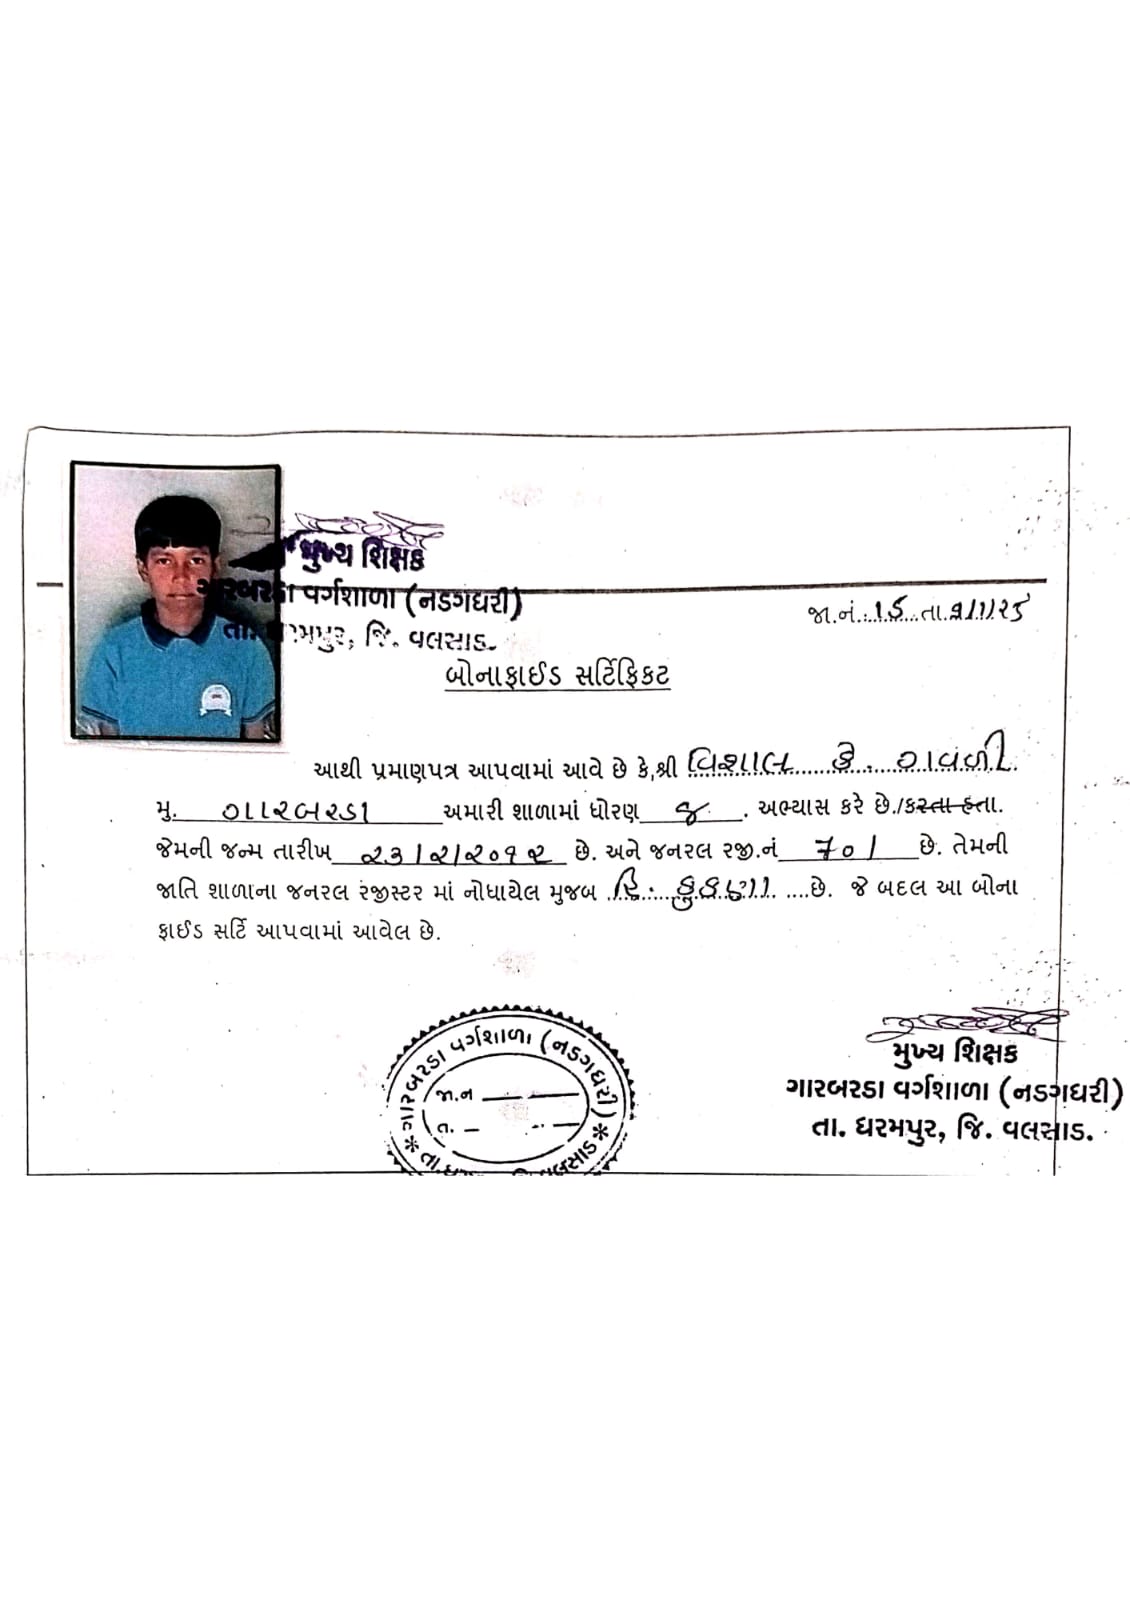 મુખ્ય શિક્ષક
ગારબરડા વર્ગશાળા (નડગધરી)
તા. ધરમપુર, જિ. વલસાડ.
જા.નં.:.૧૬...તા.
બોનાફાઈડ સર્ટિફિકટ
આથી પ્રમાણપત્ર આપવામાં આવે છે કે,શ્રી વિશાલ કે. ગાવળી
મુ. ગારબરડા અમારી શાળામાં ધોરણ ૭ . અભ્યાસ કરે છે./કરતા હતા.
જેમની જન્મ તારીખ ૨૩/૨/૨૦૧૨ છે. અને જનરલ રજી.નં 701 છે. તેમની
જાતિ શાળાના જનરલ રંજીસ્ટર માં નોધાયેલ મુજબ હિ. કુકણા છે. જે બદલ આ બોના
ફાઈડ સર્ટિ આપવામાં આવેલ છે.
ગારબરડા વર્ગશાળા (નડગધરી)
જા.ન
ત.
મુખ્ય શિક્ષક
ગારબરડા વર્ગશાળા (નડગધરી)
તા. ધરમપુર, જિ. વલસાડ.